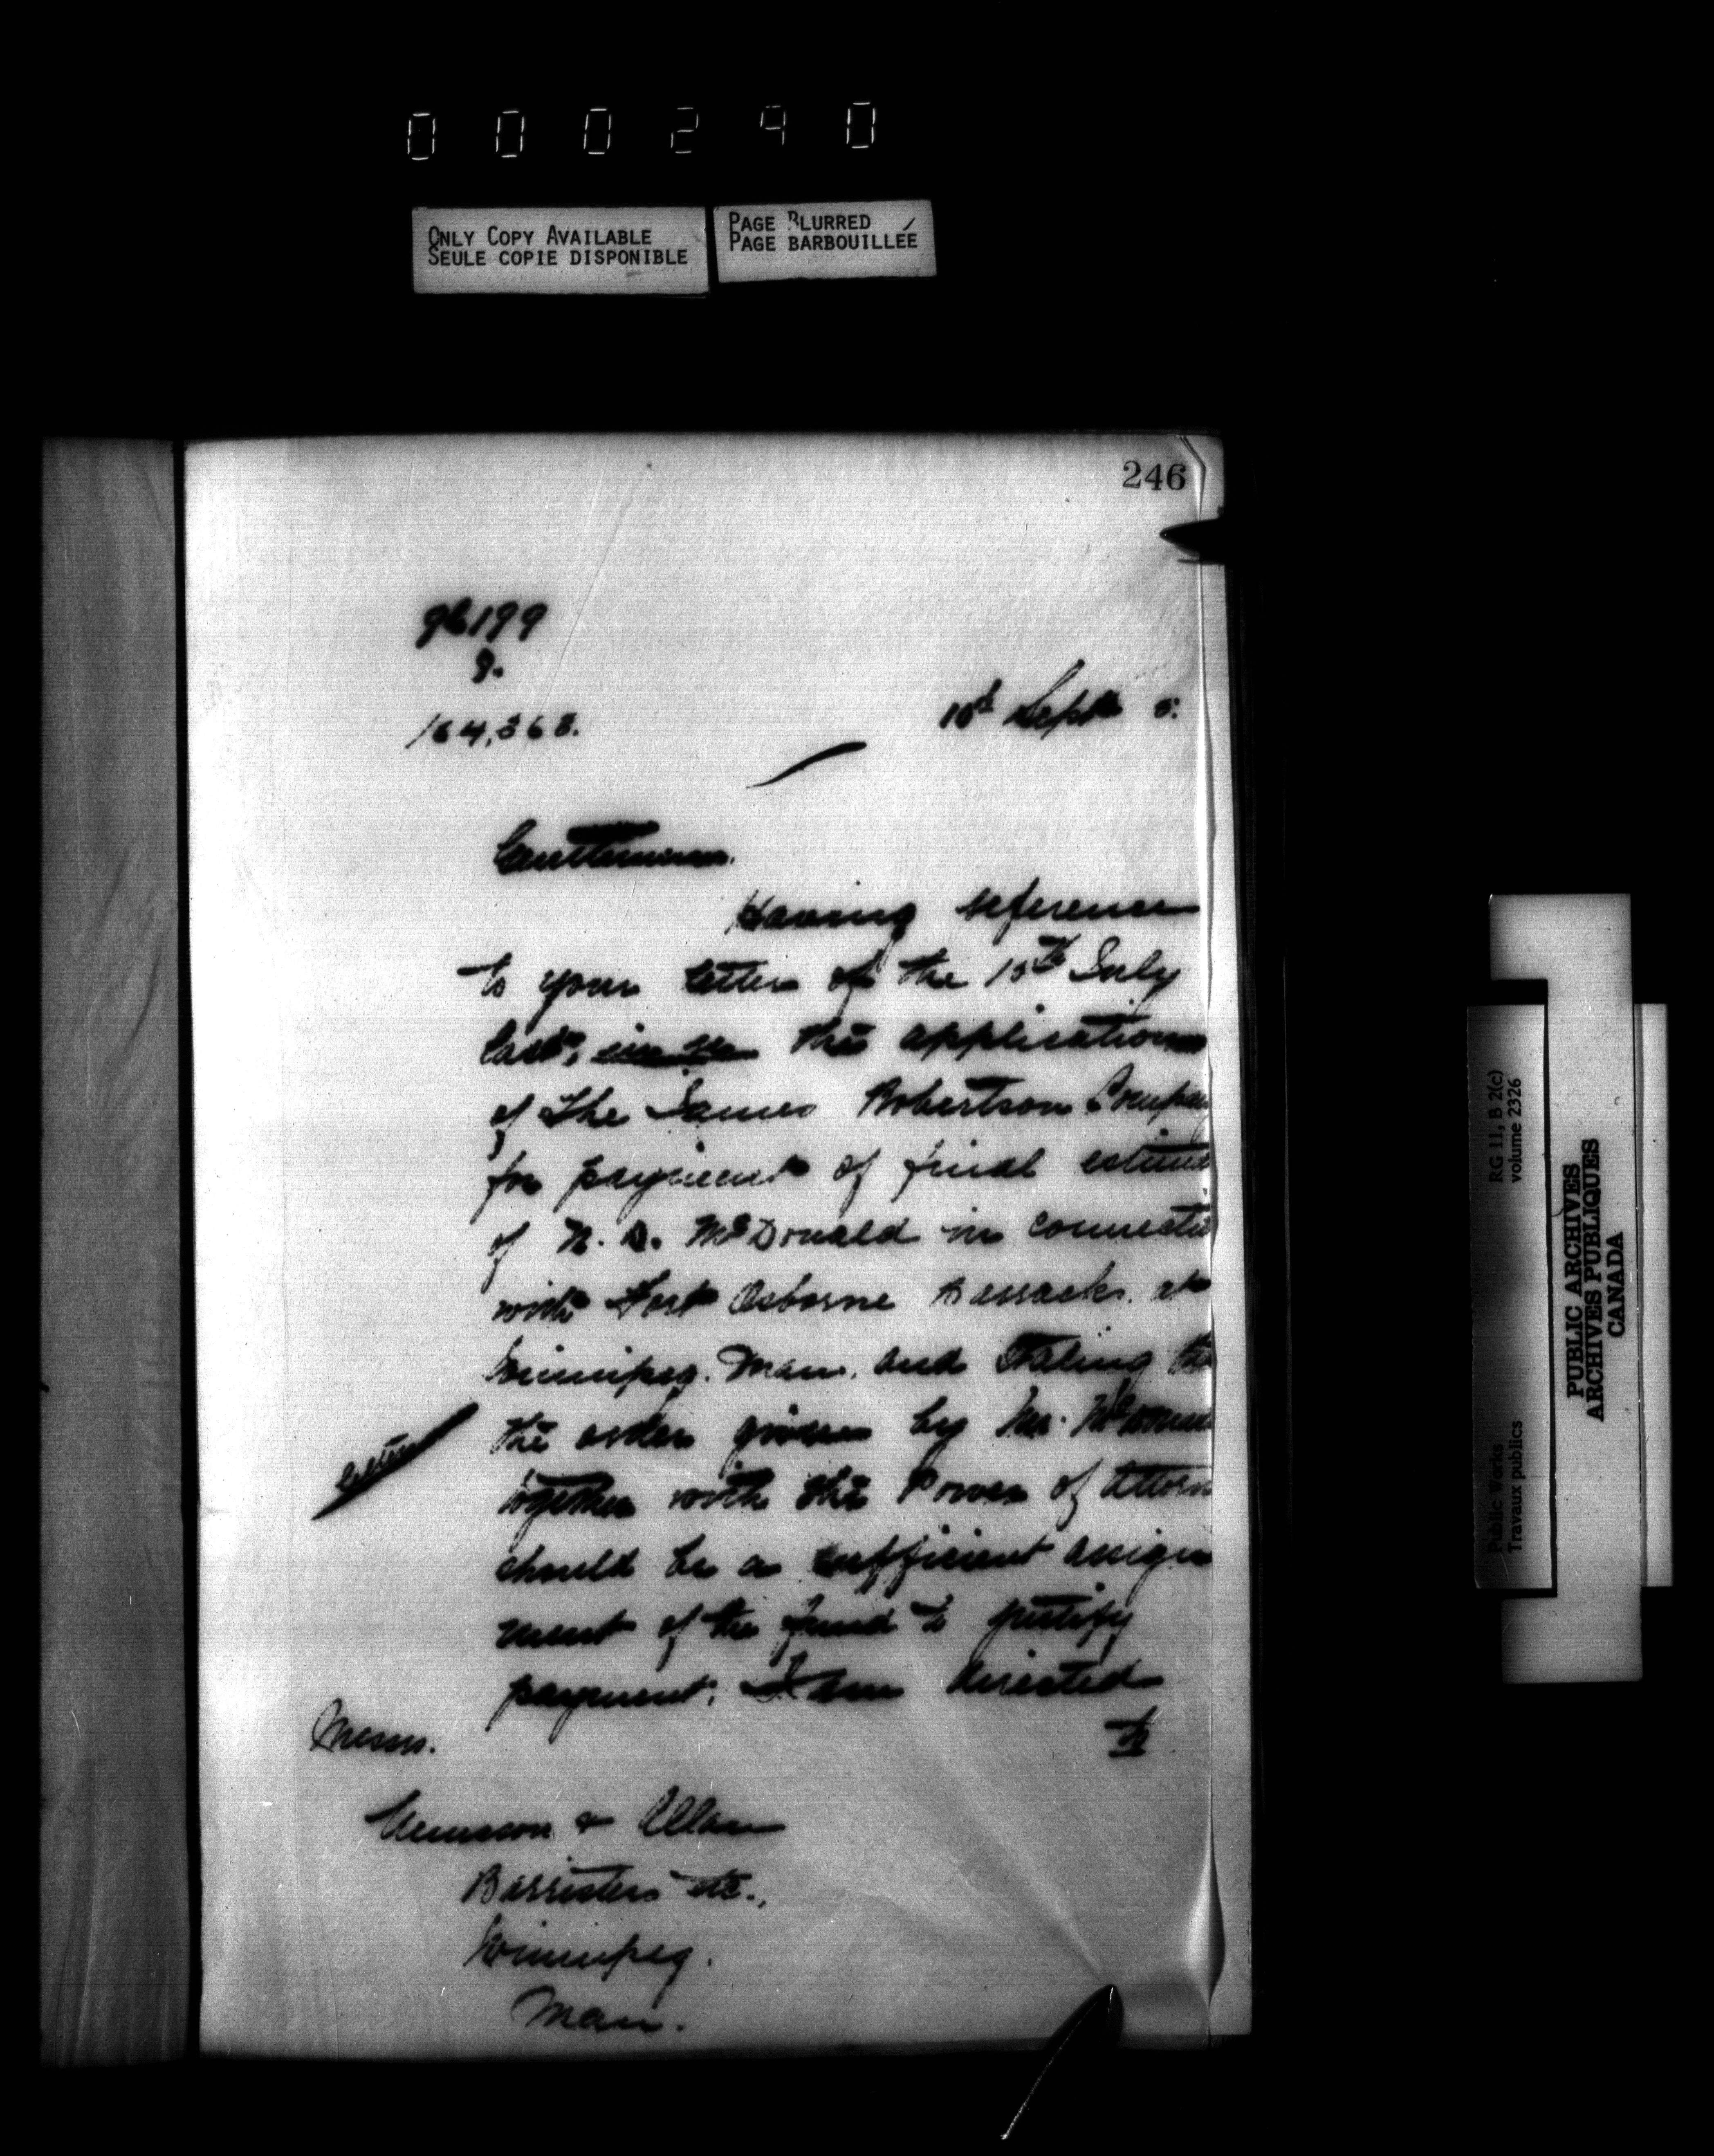 000290
ONLY COPY AVAILABLE
SEULE COPIE DISPONIBLE
PAGE BLURRED
PAGE BARBOUILLÉE
246
164,363.
10th Septr 5.
Gentlemen.
Having reference
to your letter of the 15th July
last, the application
of The James Robertson Compan
for payment of final estima
of N. D. McDonald in connecti
with Fort Osborne Barracks at
Winnipeg. Man. and stating tha
the order given by Mr. McDonal
together with the Power of Attorn
should be a sufficient assign
ment of the fund to justify
payment, I am directed
to
Messrs.
& Allan
Barristers etc.,
Winnipeg.
Man.
RG 11, B 2(c)
volume 2326
Public Works
Travaux publics
PUBLIC ARCHIVES
ARCHIVES PUBLIQUES
CANADA